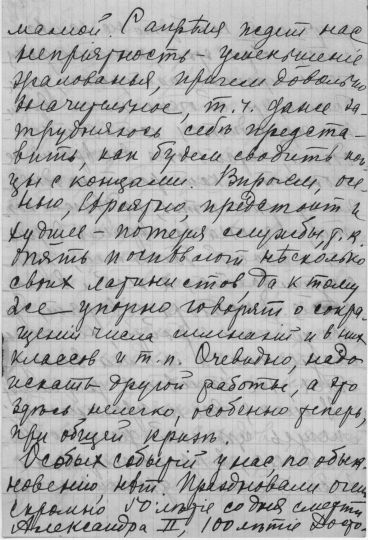 мамой. С апрѣля ждет нас
непріятность – уменьшеніе
жалованья, причем довольно
значительное, т. ч. даже за-
трудняюсь себѣ предста-
вить, как будем сводить кон-
цы с концами. Впрочем, осе-
нью, вѣроятно, предстоит и
худшее – потеря службы, т. к.
опять понаѣдет нѣсколько
своих латинистов, да к тому
же упорно говорят о сокра-
щеніи числа гимназій и в них
классов и т. п. Очевидно, надо
искать другой работы, а это
здѣсь нелегко, особенно теперь,
при общем кризѣ.
Особых событій у нас по обык-
новенію, нѣт. Праздновали очень
скромно 50-лѣтіе со дня смерти
Александра II, 100-лѣтіе Досто-